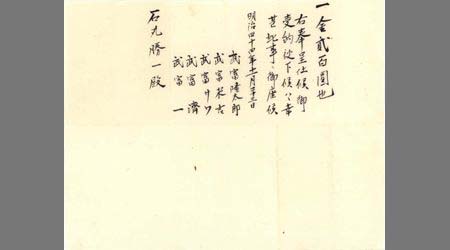 一金貳百圓也
右奉呈仕候御
受納被下候ハヽ幸
甚此事ニ御座候
明治四十四年十二月二十三日
武富時太郎
武富
武富
武富 濟
武富 一
石丸勝一殿